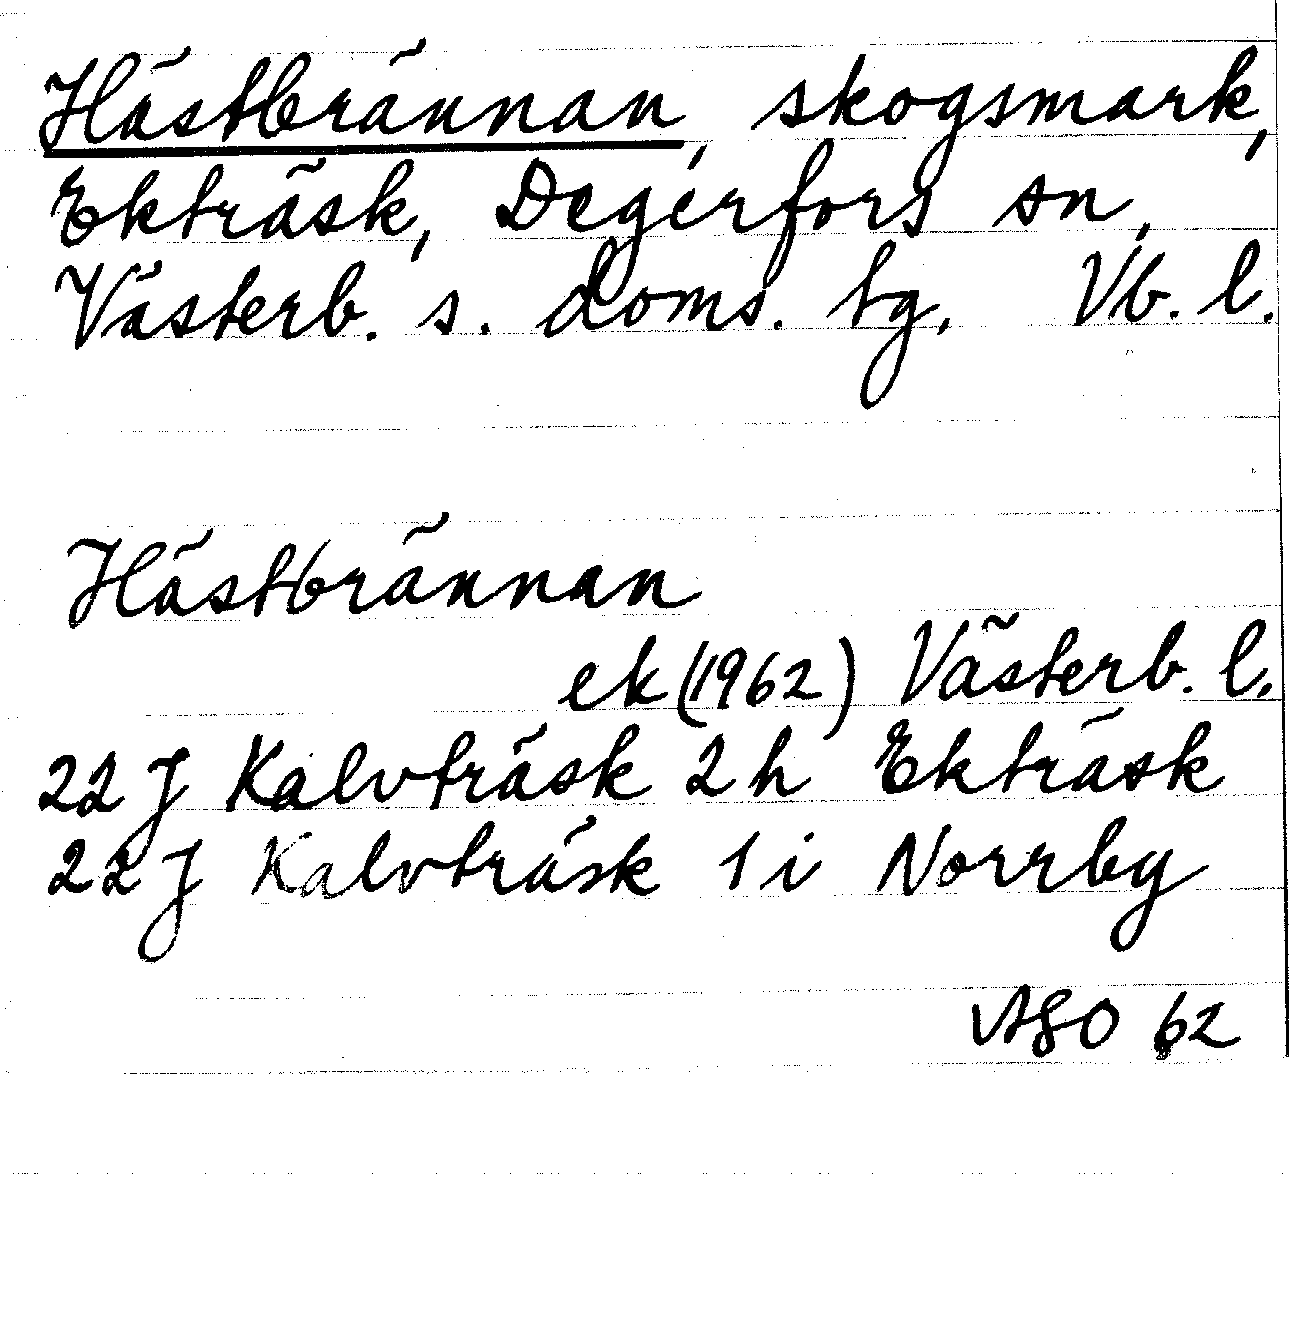 Hästbrännan, skogsmark,
Ekträsk, Degerfors sn,
Västerb. s. doms. tg, Vb. l.
Hästbrännan
ek (1962) Västerb. l.
22 J Kalvträsk 2 h Ekträsk
22 J Kalvträsk 1 i Norrby
ASO 62